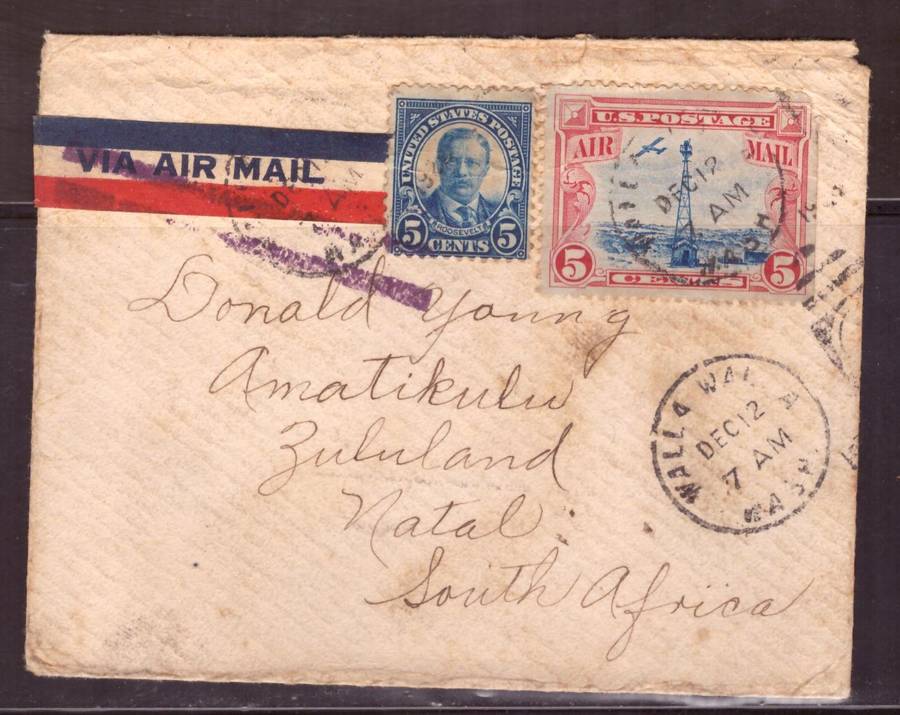 VIA AIR MAIL
UNITED STATES POSTAGE
ROOSEVELT
5 CENTS 5
U.S. POSTAGE
AIR MAIL
DEC 12
7 AM
WASH
5 CENTS 5
Donald Young
Amatikulu
Zululand
Natal
South Africa
WALLA WALLA
DEC 12
7 AM
WASH.